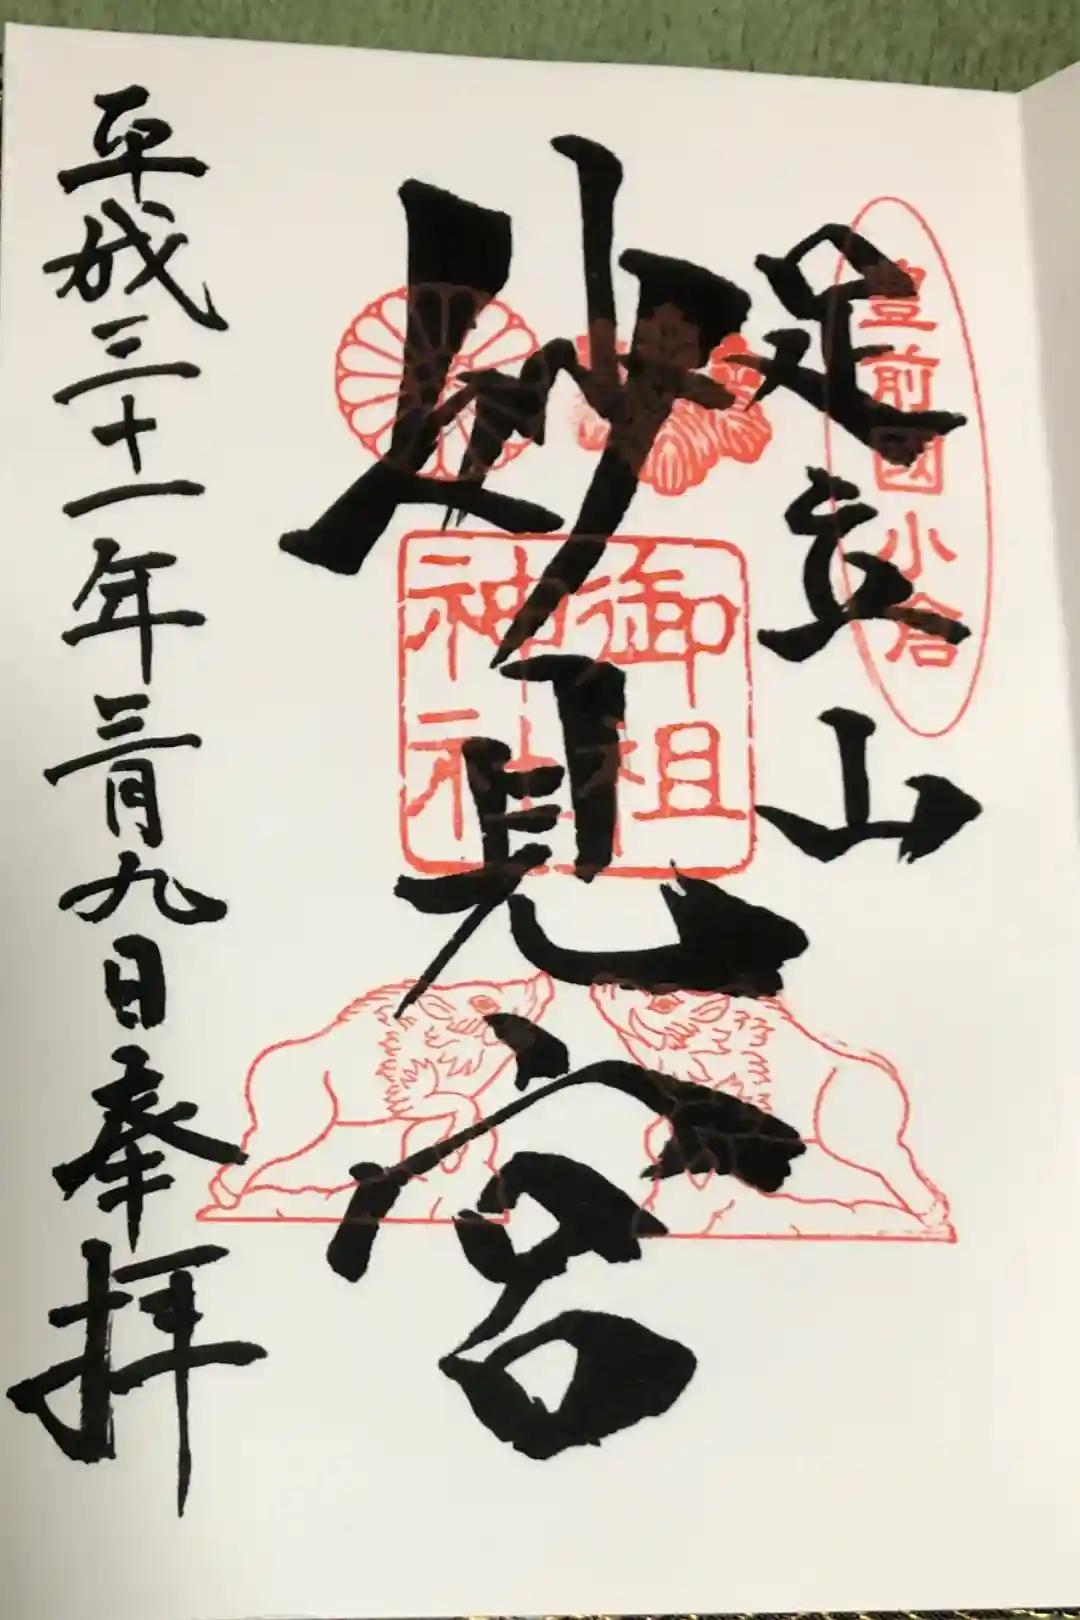 豊前國小倉
足立山
妙見宮
御祖
神社
平成三十一年三月九日奉拝